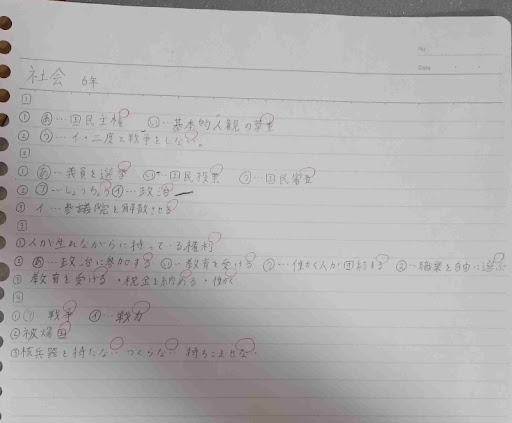 No.
Date
社会 6年
1
① あ…国民主権 い…基本的人観の尊重
② う…イ・二度と戦争をしない。
2
① あ…議員を選挙 い…国民投票 う…国民審査
② ア…しょうちょう イ…政治
③ イ…参議院を解散させる
3
①人が生れながらに持っている権利
② あ…政治に参加する い…教育を受ける う…働く人が団結する え…職業を自由に選ぶ
③ 教育を受ける・税金を納める・働く
4
①ア 戦争 イ…戦力
②被爆国
③核兵器を持たない つくらない 持ちこませない